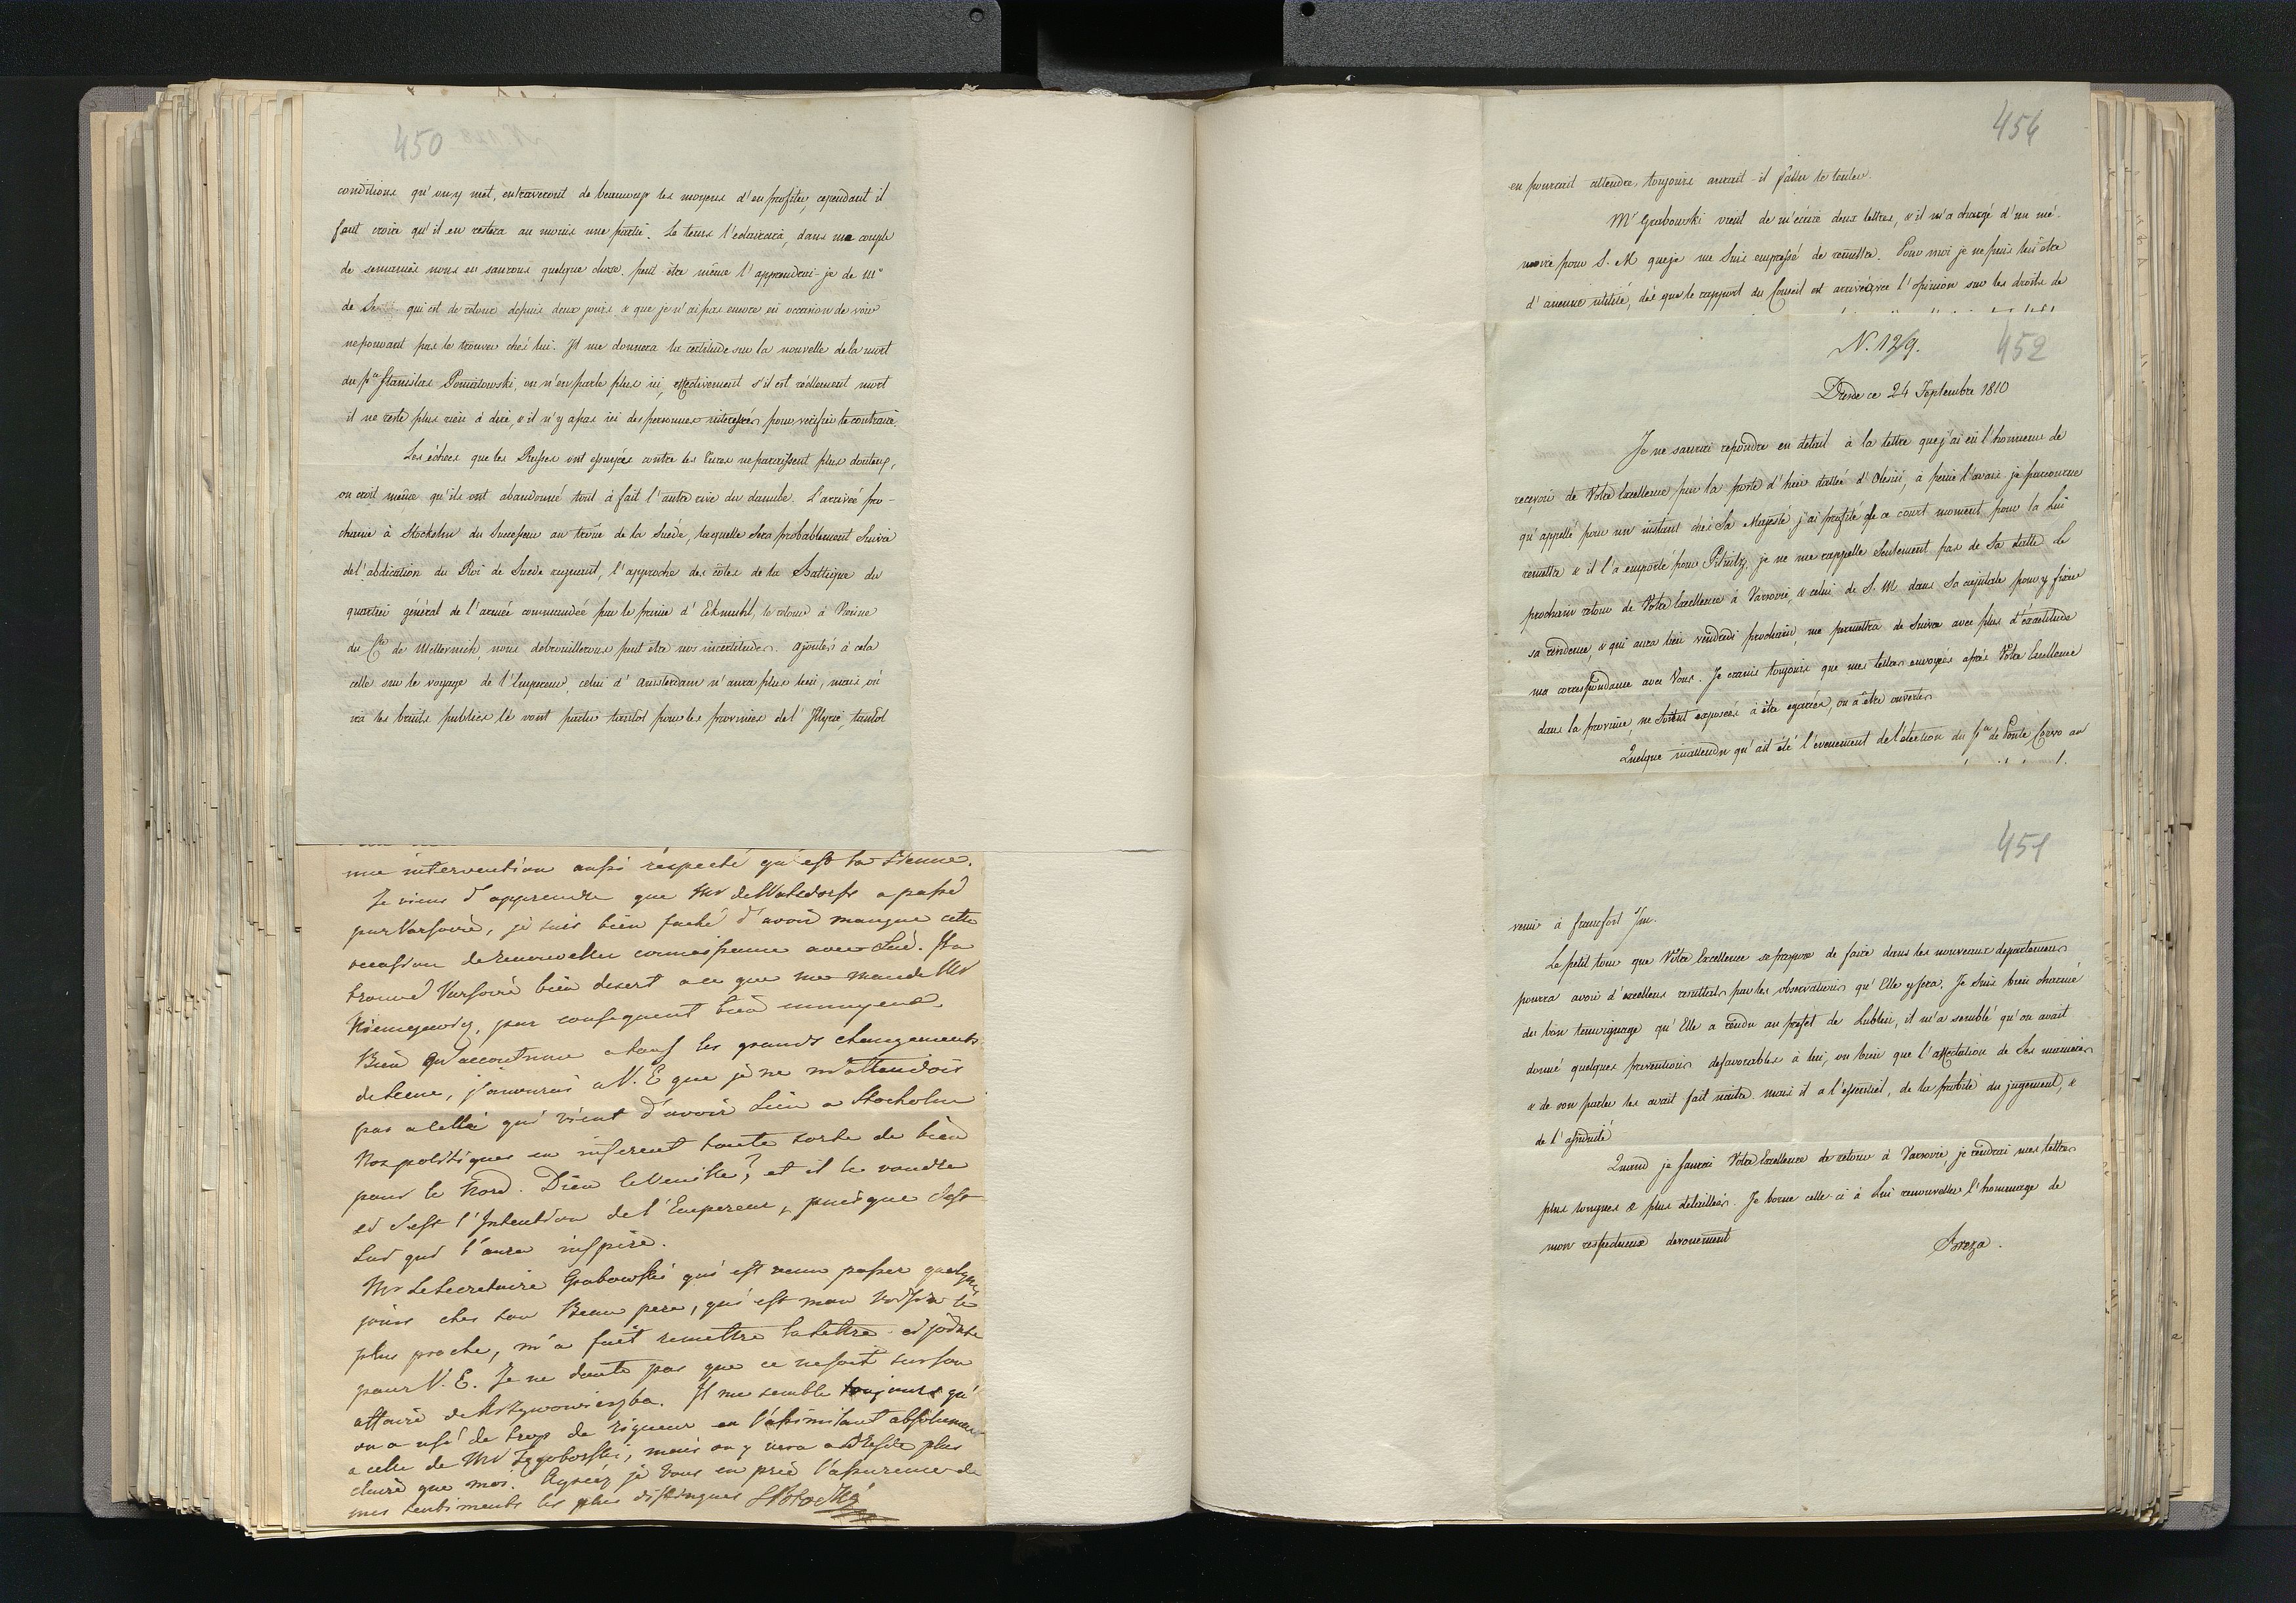 450
conditions qu'on y met, entraveront de beaucoup les moyens d'en profiter, cependant il
faut croire qu'il en restera au moins une partie. Le tems l'eclaircira, dans une couple
de semaines nous en saurons quelque chose. peut être même l'apprendrai-je de Mr
de Se qui est de retour depuis deux jours & que je n'ai pas encore eû occasion de voir
ne pouvant pas le trouver chés lui. Il me donnera la certitude sur la nouvelle de la mort
du Pce Stanislas Poniatowski, on n'en parle plus ici, effectivement s'il est réellement mort
il ne reste plus rien à dire, & il n'y a pas ici des personnes interessées pour vérifier le contraire.
Les échecs que les Russes ont essuyées contre les Turcs ne paraissent plus douteux,
on croit même qu'ils ont abandonné tout à fait l'autre rive du danube. L'arrivée pro-
chaine à Stockolm du Successeur au trône de la Suède, laquelle sera probablement Suivie
de l'abdication du Roi de Suede regnant, l'approche des côtes de la Baltique du
quartier général de l'armée commandée par le prince d'Ekmuhl, le retour à Vienne
du Cte de Metternich, nous debrouillerons peut etre nos incertitudes. ajoutés à cela
celle sur le voyage de l'Empereur, celui d'Amsterdam n'aura plus lieu, mais où
ira les bruits publics le vont partir tantot pour les provinces de l'Illyrie, tantot
une intervention aussi respecté qu'est la Sienne.
Je viens d'apprendre que Mr de Watzdorff a passé
par Varsovie, je suis bien faché d'avoir manque cette
occasion de renouveller connaissance avec Lui. Il a
trouvé Varsovie bien desert a ce que me mande Mr
Niemcewicz, par consequent bien ennuyeux.
Bien qu'accoutumé a tous les grands changements
de Scene, j'avouerai a V. E que je ne m'attendois
pas a celle qui vient d'avoir Lieu a Stockolm
Nos politiques en inferent toute sorte de bien
pour le Nord. Dieu le Veuille, et il le voudra
si c'est l'Intention de l'Empereur, puisque c'est
Lui qui l'aura inspiré.
Mr Le Secretaire Grabowski qui est venu passer quelques
jours chez son Beau pere, qui est mon Voisin le
plus proche, m'a fait remettre la lettre ci jointe
pour V. E. Je ne doute pas que ce ne soit sur son
affaire de Krzywowierzba. Il me semble toujours qu'
on a usé de trop de rigueur en l'assimilant absolument
a celle de Mr Zgoborski, mais on y verra a Dresde plus
claire que moi. Agréez je vous en prie l'assurence de
mes sentiments les plus distingues S Potocki
454
en pourrait attendre, toujours aurait-il fallu le tenter.
Mr Grabowski vient de m'écrire deux lettres, & il m'a chargé d'un mé-
moire pour S. M que je me Suis empressé de remettre. Pour moi je ne puis lui être
d'aucune utilité, dès que le rapport du Conseil est arrivé avec l'opinion sur les droits de
N. 129.
452
Dresde ce 24 Septembre 1810
Je ne saurai repondre en detail à la lettre que j'ai eû l'honneur de
recevoir de Votre Excellence par la poste d'hier datée d'Olesin, à peine l'avais-je parcourue
qu'appellé pour un instant chés Sa Majesté j'ai profité de ce court moment pour la Lui
remettre & il l'a emporté pour Pillnitz, je ne me rappelle Seulement pas de Sa datte. Le
prochain retour de Votre Excellence à Varsovie, & celui de S. M dans Sa capitale pour y fixer
sa residence, & qui aura lieu vendredi prochain, me permettra de Suivre avec plus d'exactitude
ma correspondance avec Vous. Je crains toujours que mes lettres envoyées après Votre Excellence
dans la province, ne soient exposées à être egarées, ou à être ouvertes
Quelque inattendu qu'ait été l'evenement de l'élection du Pce de Ponte Corvo au
451
venir à francfort S/m.
Le petit tour que Votre Excellence se propose de faire dans les nouveaux departemens
pourra avoir d'excellens resultats par les observations qu'Elle y fera. Je Suis bien charmé
du bon temoignage qu'Elle a rendu au prefet de Lublin, il m'a semblé qu'on avait
donné quelques preventions defavorables à lui, ou bien que l'affectation de Ses manieres
& de son parler les avait fait naitre. mais il a l'essentiel, de la probité du jugement, &
de l'assiduité
Quand je Saurai Votre Excellence de retour à Varsovie, je rendrai mes lettres
plus longues & plus détaillées. Je borne celle-ci à Lui renouveller l'hommage de
mon respectueux devouement
Breza.